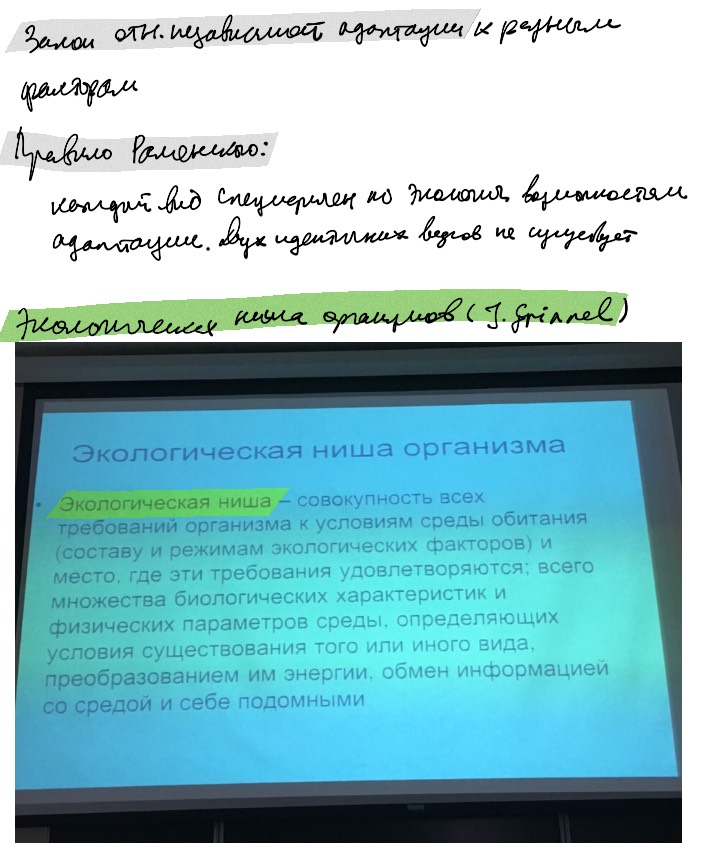 Закон отн. независимост адаптации к разным
факторам
Правило Раменского:
каждый вид специфичен по эколог. возможностям
адаптации. Двух идентичных видов не существует
Экологическая ниша организмов (J. Grinnel)
Экологическая ниша организма
• Экологическая ниша – совокупность всех
требований организма к условиям среды обитания
(составу и режимам экологических факторов) и
место, где эти требования удовлетворяются; всего
множества биологических характеристик и
физических параметров среды, определяющих
условия существования того или иного вида,
преобразованием им энергии, обмен информацией
со средой и себе подомными